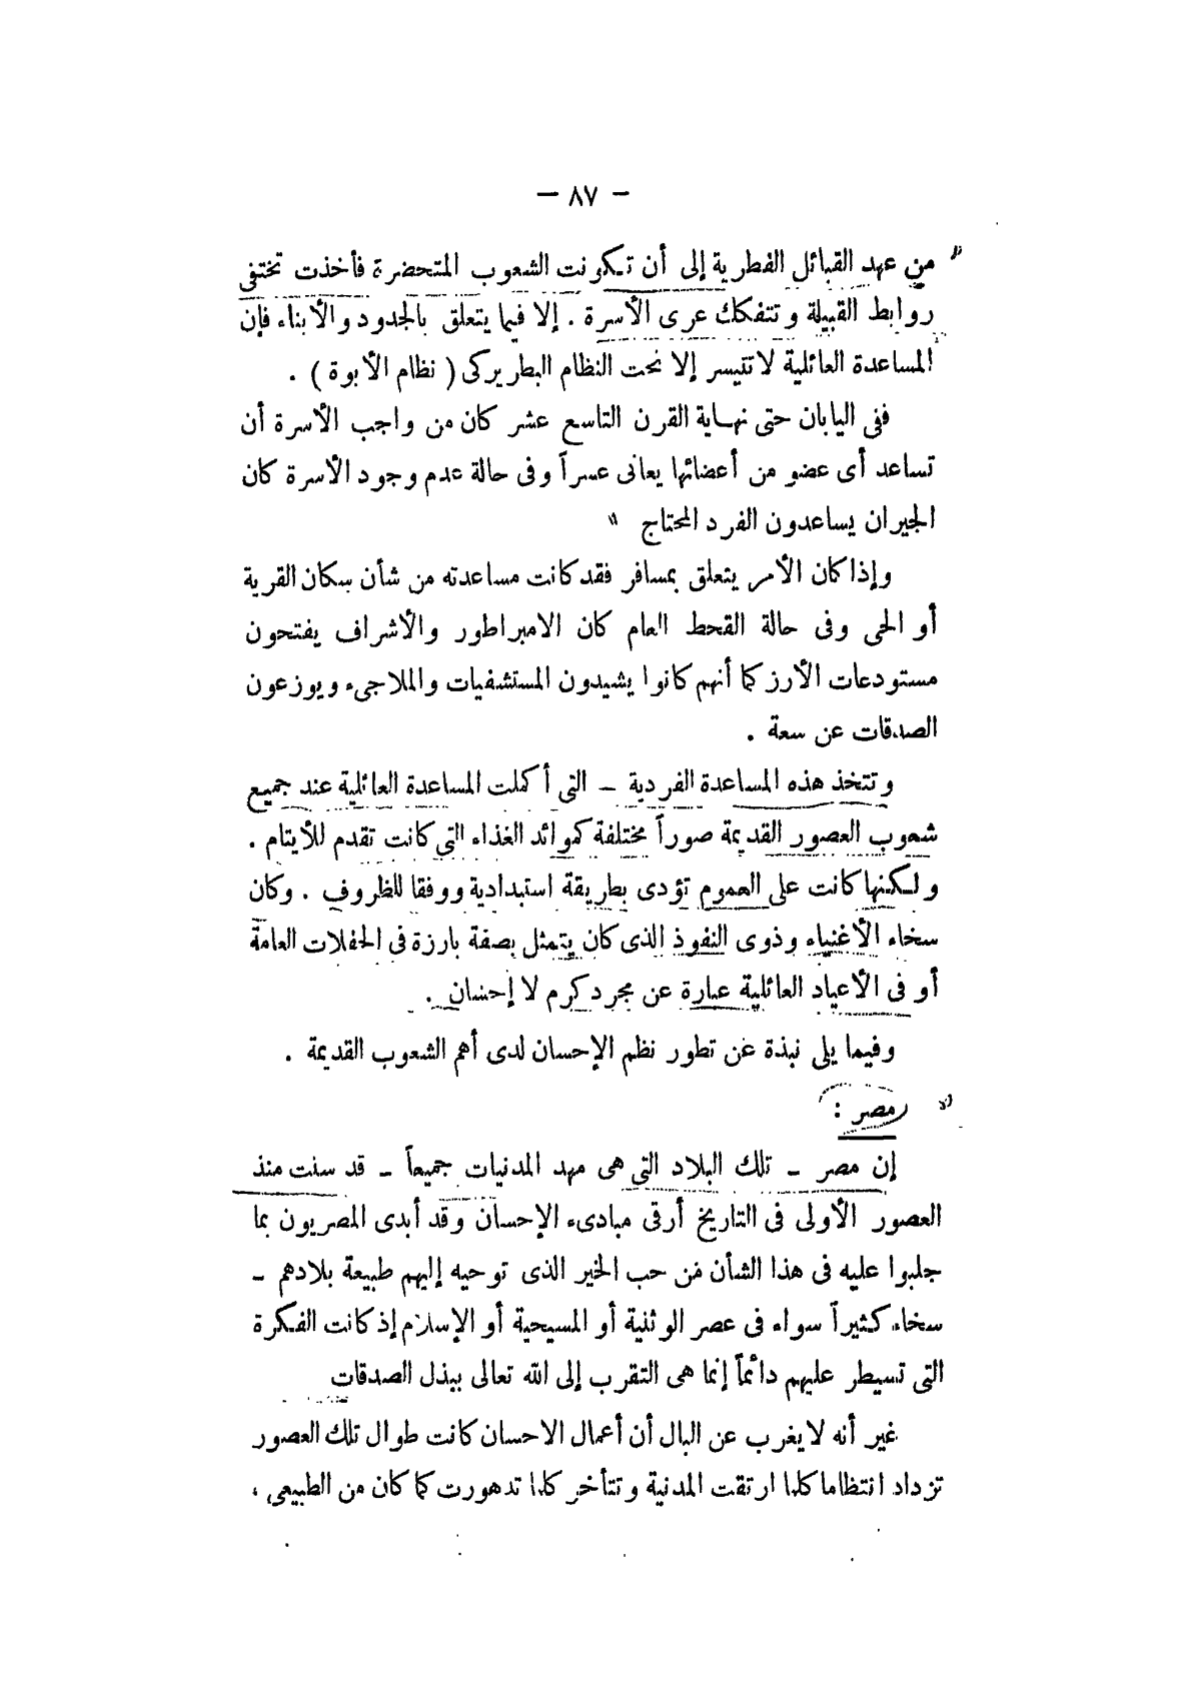 — ٨٧ —
من عهد القبائل الفطرية إلى أن تكونت الشعوب المتحضرة فأخذت تختفى
روابط القبيلة وتتفكك عرى الأسرة . إلا فيما يتعلق بالجدود والأبناء فإن
المساعدة العائلية لا تتيسر إلا تحت النظام البطريركى ( نظام الأبوة ) .
ففى اليابان حتى نهاية القرن التاسع عشر كان من واجب الأسرة أن
تساعد أى عضو من أعضائها يعانى عسراً وفى حالة عدم وجود الأسرة كان
الجيران يساعدون الفرد المحتاج "
وإذا كان الأمر يتعلق بمسافر فقد كانت مساعدته من شأن سكان القرية
أو الحى وفى حالة القحط العام كان الامبراطور والأشراف يفتحون
مستودعات الأرز كما أنهم كانوا يشيدون المستشفيات والملاجىء ويوزعون
الصدقات عن سعة .
وتتخذ هذه المساعدة الفردية – التى أكملت المساعدة العائلية عند جميع
شعوب العصور القديمة صوراً مختلفة كموائد الغذاء التى كانت تقدم للأيتام .
ولكنها كانت على العموم تؤدى بطريقة استبدادية ووفقا للظروف . وكان
سخاء الأغنياء وذوى النفوذ الذى كان يتمثل بصفة بارزة فى الحفلات العامة
أو فى الأعياد العائلية عبارة عن مجرد كرم لا إحسان .
وفيما يلى نبذة عن تطور نظم الإحسان لدى أهم الشعوب القديمة .
مصر :
إن مصر – تلك البلاد التى هى مهد المدنيات جميعاً – قد سنت منذ
العصور الأولى فى التاريخ أرقى مبادىء الإحسان وقد أبدى المصريون بما
جلبوا عليه فى هذا الشأن من حب الخير الذى توحيه إليهم طبيعة بلادهم –
سخاء كثيراً سواء فى عصر الوثنية أو المسيحية أو الإسلام إذ كانت الفكرة
التى تسيطر عليهم دائماً إنما هى التقرب إلى الله تعالى ببذل الصدقات
غير أنه لا يغرب عن البال أن أعمال الاحسان كانت طوال تلك العصور
تزداد انتظاما كلما ارتقت المدنية وتتأخر كلما تدهورت كما كان من الطبيعى ،